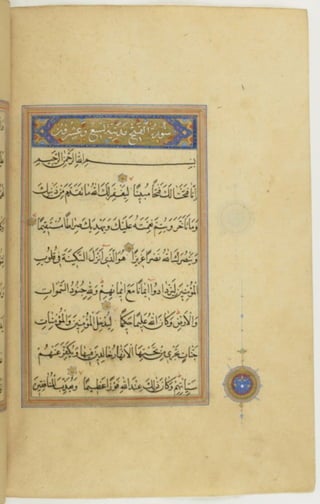 سورة الفتح مدنية تسع وعشرون
بسم الله الرحمن الرحيم
إنا فتحنا لك فتحا مبينا ليغفر لك الله ما تقدم من ذنبك
وما تأخر ويتم نعمته عليك ويهديك صراطا مستقيما
وينصرك الله نصرا عزيزا هو الذي أنزل السكينة في قلوب
المؤمنين ليزدادوا إيمانا مع إيمانهم ولله جنود السموات
والأرض وكان الله عليما حكيما ليدخل المؤمنين والمؤمنات
جنات تجري من تحتها الأنهار خالدين فيها ويكفر عنهم
سيئاتهم وكان ذلك عند الله فوزا عظيما ويعذب المنافقين